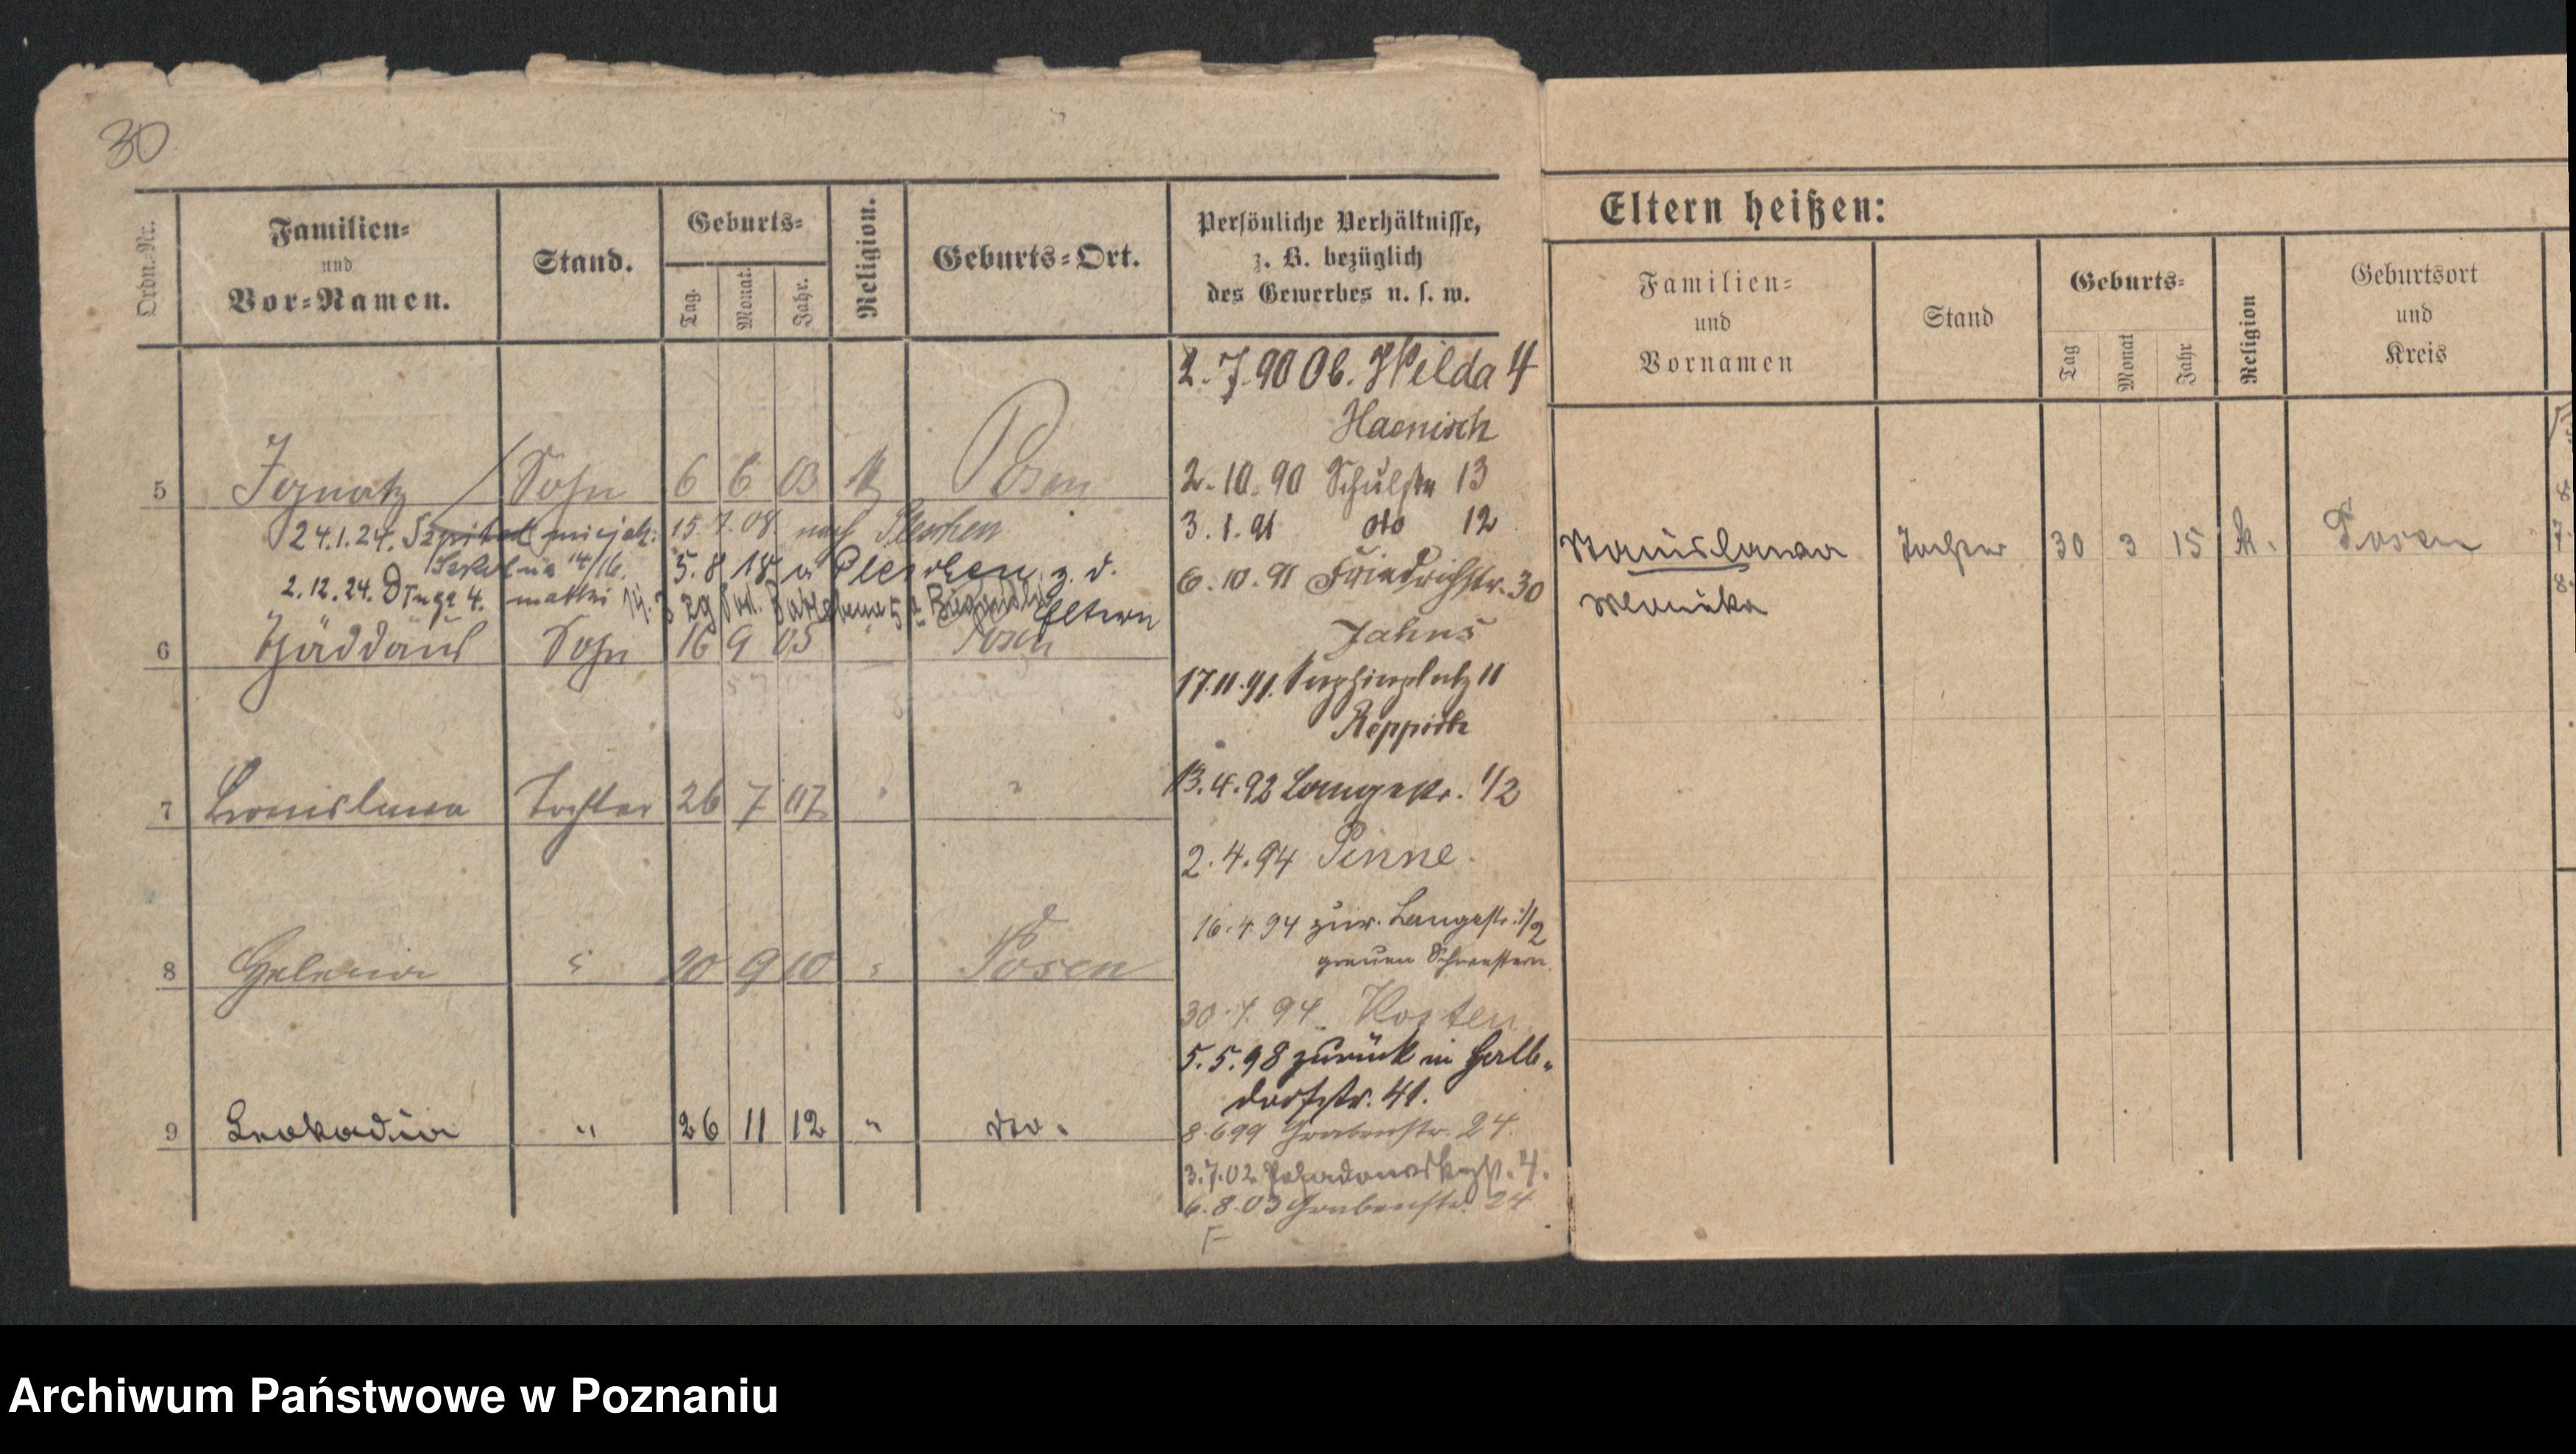 30
Ordn.-Nr.
Familien-
und
Vor-Namen.
Stand.
Geburts-
Tag.
Monat.
Jahr.
Religion.
Geburts-Ort.
Persönliche Verhältnisse,
z. B. bezüglich
des Gewerbes u. s. w.
5 Ignatz Sohn 6 6 03 k Posen
24.1.24. Szpital miejsk. 15.7.08. nach Pleschen
Szkolna 14/16. 5.8.18 v Pleschen z. d.
2.12.24. Długa 4. matki
Eltern
6 Thäddäus Sohn 16 9 05 " Posen
7 Bronislawa Tochter 26 7 07 " "
8 Helena " 20 9 10 " Posen
9 Leokadia " 26 11 12 " do.
2.7.90 Ob. Wilda 4
Haenisch
2.10.90 Schulstr 13
3.1.91 dto 12
6.10.91 Friedrichstr. 30
Jahns
17.11.91. Sapiehaplatz 11
13.4.92 Langestr. 1/2
2.4.94 Pinne.
16.4.94 zur. Langestr. 1/2
grauen Schwestern.
94 Kosten
5.5.98 zurück in Halb-
dorfstr. 41.
8.6 99 Grabenstr. 24
3.7.02. 4.
6.8.03 Grabenstr. 24
Eltern heißen:
Familien-
und
Vornamen
Stand
Geburts-
Tag
Monat
Jahr
Religion
Geburtsort
und
Kreis
Stanislawa Tochter 30 3 15 k. Posen
Monika
Archiwum Państwowe w Poznaniu